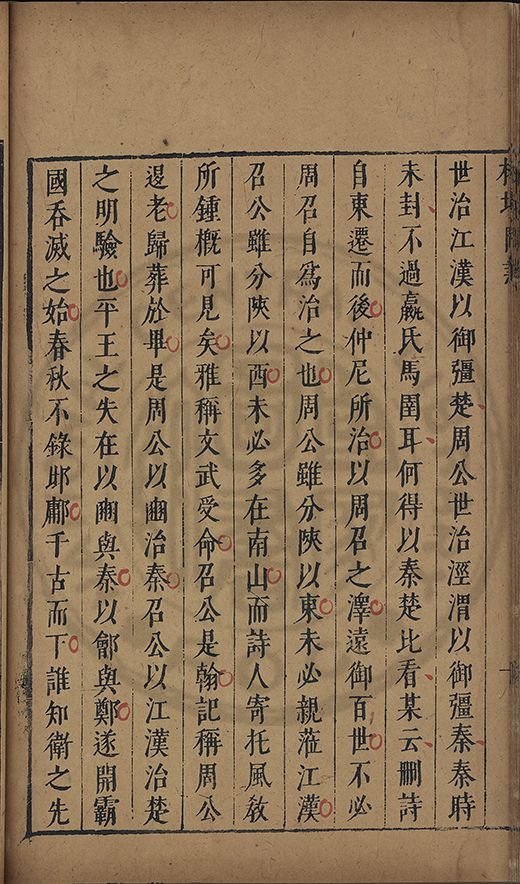 世治江漢以御彊楚周公世治涇渭以御彊秦秦時
未封不過嬴氏馬圉耳何得以秦楚比看某云刪詩
自東遷而後仲尼所治以周召之澤遠御百世不必
周召自為治之也周公雖分陝以東未必親蒞江漢
召公雖分陝以西未必多在南山而詩人寄托風教
所鍾概可見矣雅稱文武受命召公是翰記稱周公
退老歸葬於畢是周公以豳治秦召公以江漢治楚
之明驗也平王之失在以豳與秦以鄶與鄭遂開霸
國吞滅之始春秋不錄邶鄘千古而下誰知衛之先